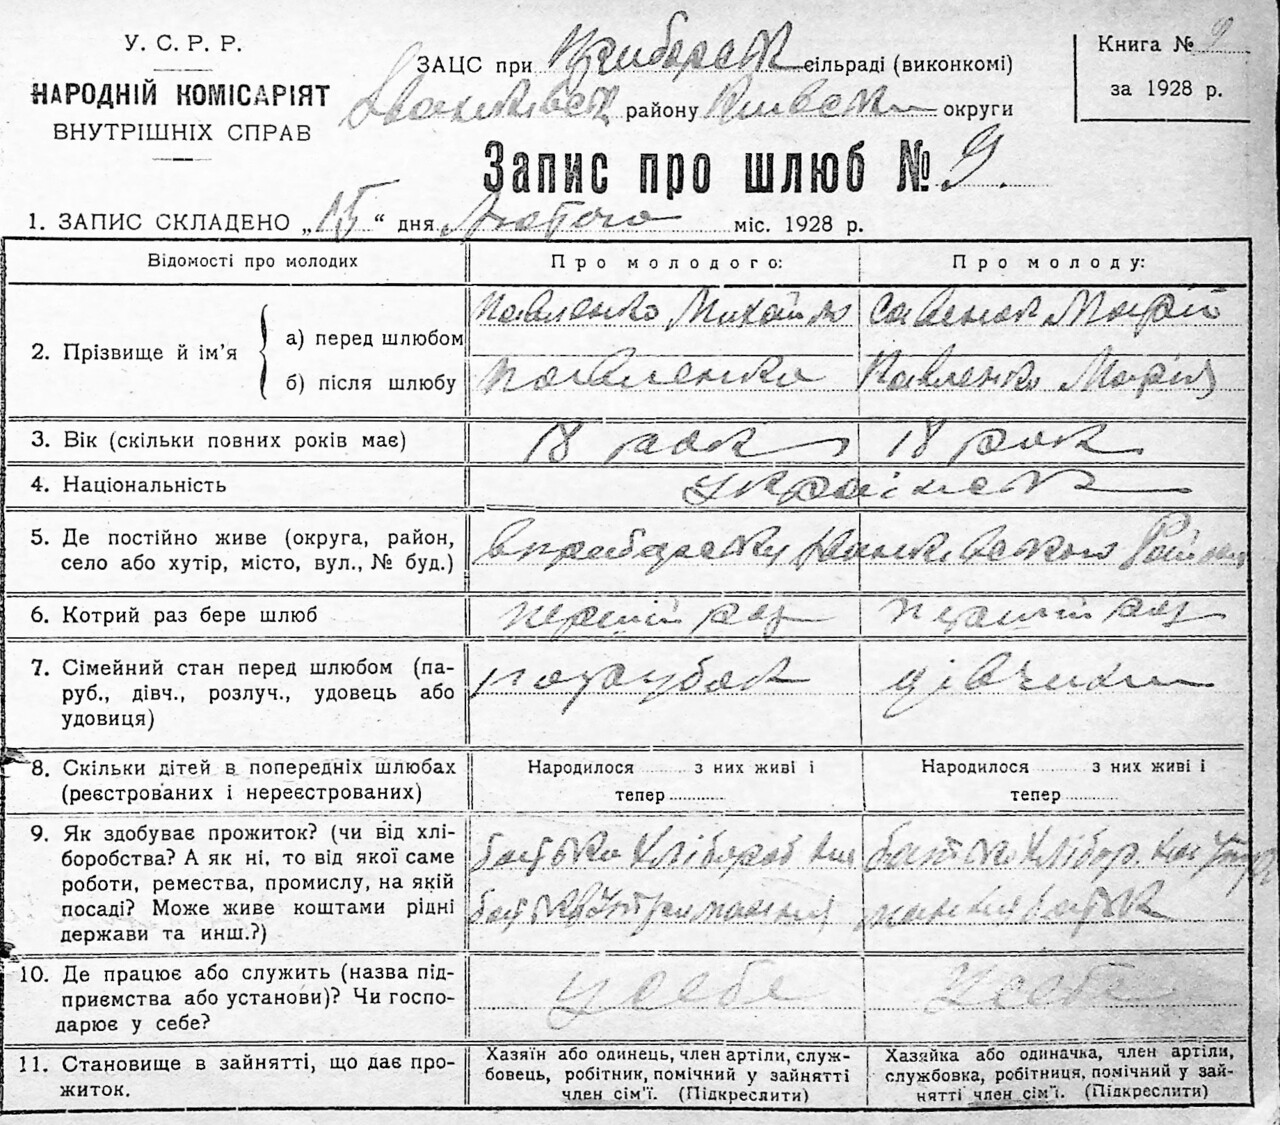 У. С. Р. Р.
НАРОДНІЙ КОМІСАРІЯТ
ВНУТРІШНІХ СПРАВ
ЗАЦС при сільраді (виконкомі)
району округи
Книга № 9
за 1928 р.
Запис про шлюб № 9.
1. ЗАПИС СКЛАДЕНО „15“ дня Лютого міс. 1928 р.
Відомості про молодих
Про молодого:
Про молоду:
2. Прізвище й ім’я
а) перед шлюбом
Павленко Михайло
Савенок Марія
б) після шлюбу
Павленко
Павленко Марія
3. Вік (скільки повних років має)
18 рок
18 рок
4. Національність
5. Де постійно живе (округа, район,
село або хутір, місто, вул., № буд.)
6. Котрий раз бере шлюб
перший раз
перший раз
7. Сімейний стан перед шлюбом (па-
руб., дівч., розлуч., удовець або
удовиця)
парубок
дівчина
8. Скільки дітей в попередніх шлюбах
(реєстрованих і нереєстрованих)
Народилося з них живі і
тепер
Народилося з них живі і
тепер
9. Як здобуває прожиток? (чи від хлі-
боробства? А як ні, то від якої саме
роботи, ремества, промислу, на якій
посаді? Може живе коштами рідні
держави та инш.?)
10. Де працює або служить (назва під-
приємства або установи)? Чи госпо-
дарює у себе?
у себе
у себе
11. Становище в зайнятті, що дає про-
житок.
Хазяїн або одинець, член артіли, служ-
бовець, робітник, помічний у зайнятті
член сім’ї. (Підкреслити)
Хазяйка або одиначка, член артіли,
службовка, робітниця, помічний у зай-
нятті член сім’ї. (Підкреслити)